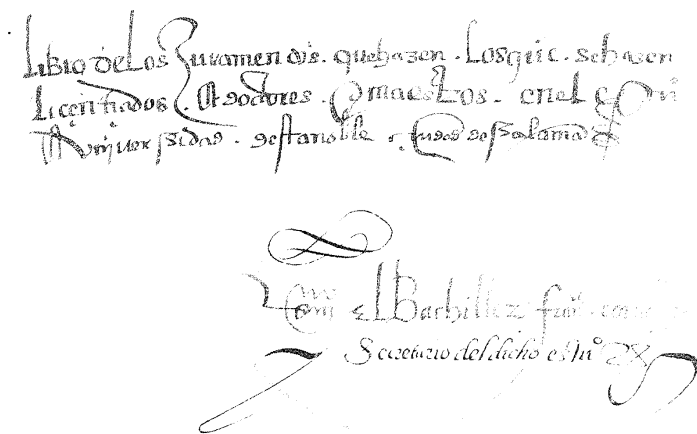 Libro de Los Juramentos. que hazen. Los que. se hazen
Licenciados. O doctores. O maestros. en el
Vniversidad. desta noble çiudad de Salamãca
el Bachiller
Secretario del dicho estuº